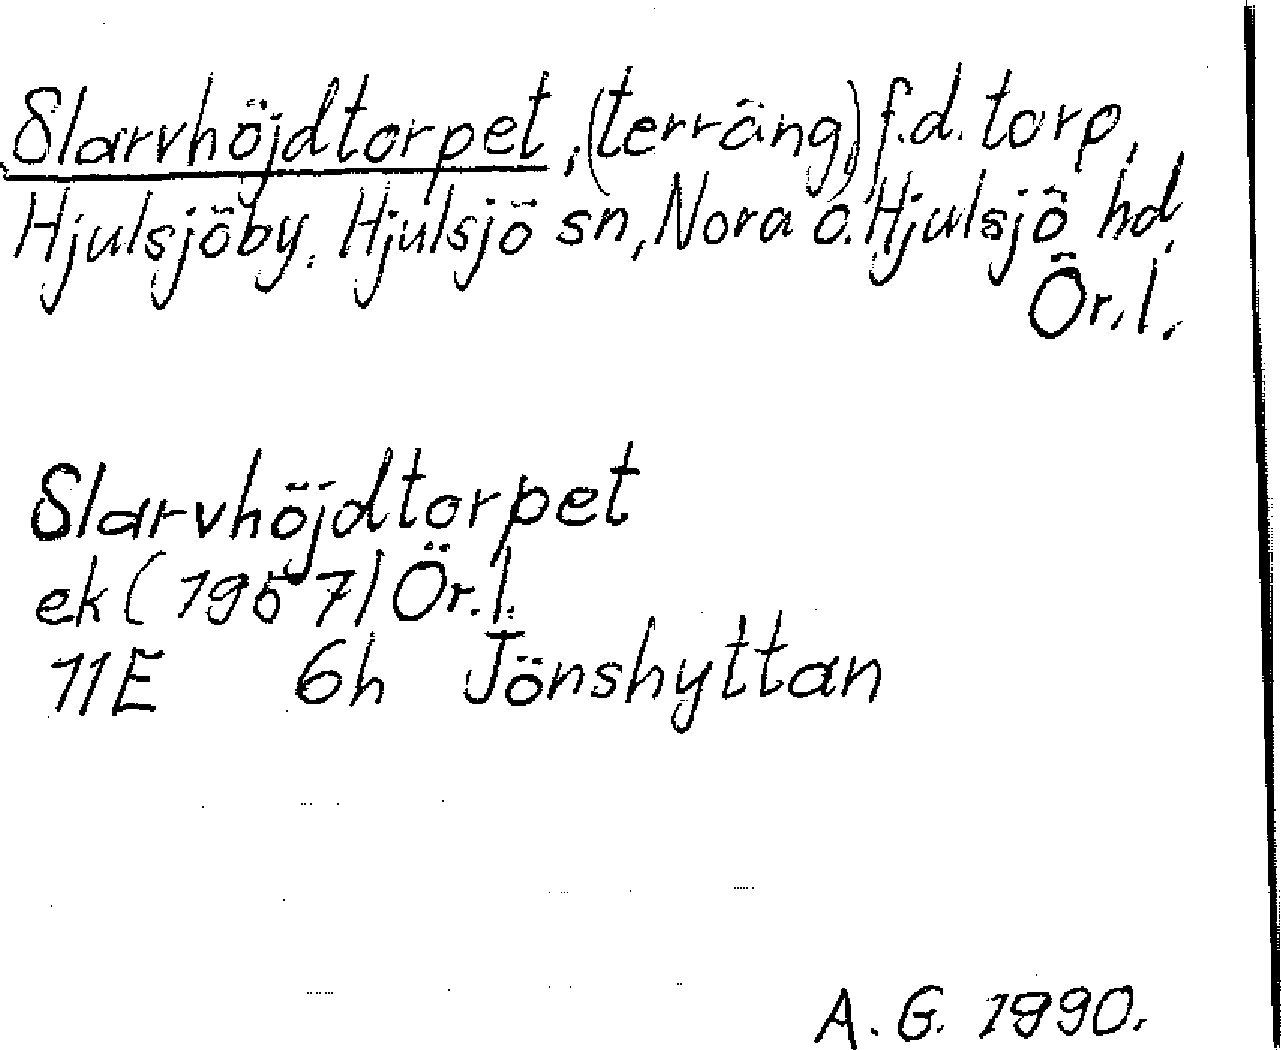 Slarvhöjdtorpet, (terräng) f.d. torp,
Hjulsjöby, Hjulsjö sn, Nora o. Hjulsjö hd,
Ör. l.
Slarvhöjdtorpet
ek (1957) Ör. l.
11E 6h Jönshyttan
A. G. 1990.